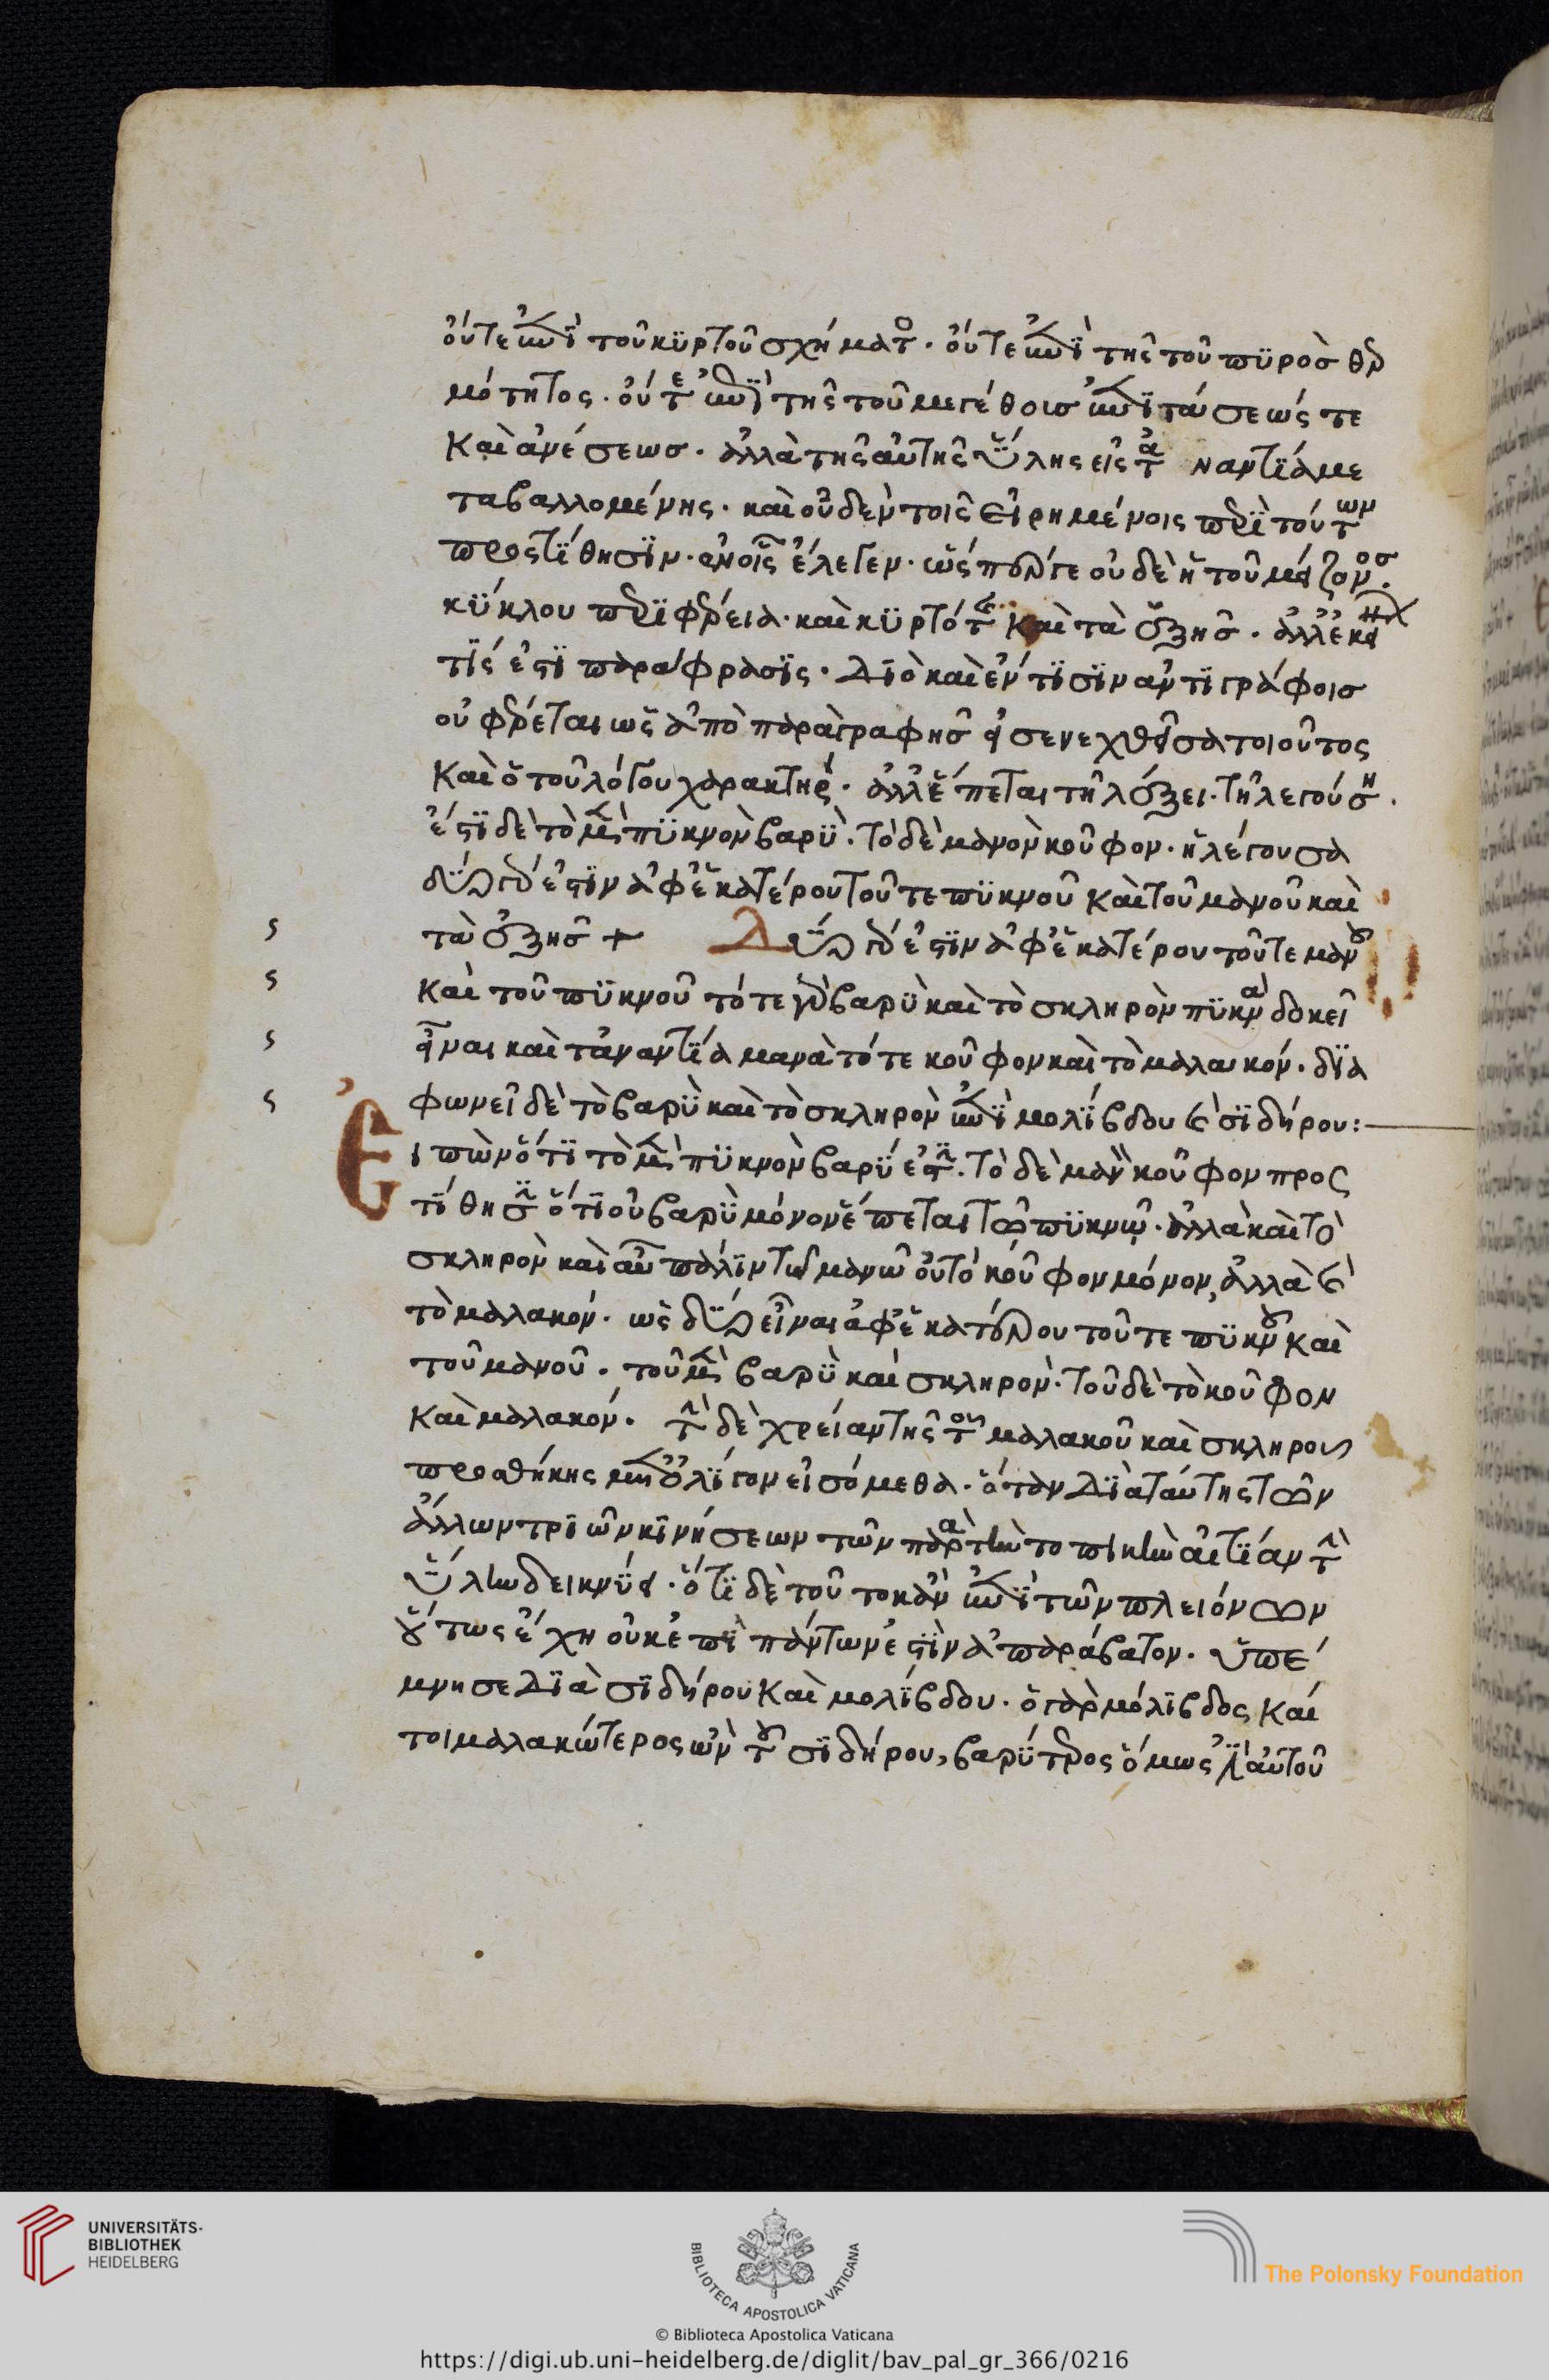 οὔτε ἐπὶ τοῦ κυρτοῦ σχήματο. οὔτε ἐπὶ τῆς τοῦ πυρὸσ θερ
μότητος. οὔτε ἐπὶ τῆς τοῦ μεγέθουσ ἐπιτάσεώς τε
καὶ ἀνέσεωσ. ἀλλὰ τῆς αὐτῆς ὕλης εἰς τἀναντία με
ταβαλλομένης. καὶ οὐδὲν τοῖς εἰρημένοις περὶ τούτων
προστίθησιν. ἐν οἷς ἔλεγεν. ὥσπερ γε οὐδὲ ἡ τοῦ μείζονοσ.
κύκλου περιφέρεια. καὶ κυρτότ καὶ τὰ ἑξῆσ. ἀλλ' ἐκεί
τίς ἐστι παράφρασις. διὸ καὶ ἐν τισὶν ἀντιγράφοισ
οὐ φέρεται ὡς ἀπὸ παραγραφῆσ εἰσενεχθεῖσα τοιοῦτος
καὶ ὁ τοῦ λόγου χαρακτήρ. ἀλλ' ἕπεται τῇ λέξει. τῇ λεγούσῃ.
ἔστι δὲ τὸ μὲν πυκνὸν βαρύ. τὸ δὲ μανὸν κοῦφον. ἡ λέγουσα
δύο γάρ ἐστιν ἀφ' ἑκατέρου τοῦ τε πυκνοῦ καὶ τοῦ μανοῦ καὶ
τὰ ἑξῆσ + Δύο γάρ ἐστιν ἀφ' ἑκατέρου τοῦ τε μανοῦ
καὶ τοῦ πυκνοῦ τό τε γὰρ βαρὺ καὶ τὸ σκληρὸν πυκνὰ δοκεῖ
εἶναι καὶ τἀναντία μανὰ τό τε κοῦφον καὶ τὸ μαλακόν. δια
φωνεῖ δὲ τὸ βαρὺ καὶ τὸ σκληρὸν ἐπὶ μολίβδου καὶ σιδήρου:
Εἰπὼν ὅτι τὸ μὲν πυκνὸν βαρύ ἐστι. τὸ δὲ μανὸν κοῦφον προς
τίθησιν ὅτι οὐ βαρὺ μόνον ἕπεται τῶ πυκνῶ. ἀλλὰ καὶ τὸ
σκληρὸν καὶ αὖ πάλιν τῶ μανῶ οὐ τὸ κοῦφον μόνον, ἀλλὰ καὶ
τὸ μαλακόν. ὡς δύο εἶναι ἀφ' ἑκατέρου τοῦ τε πυκνοῦ καὶ
τοῦ μανοῦ. τοῦ μὲν βαρὺ καὶ σκληρὸν. τοῦ δὲ τὸ κοῦφον
καὶ μαλακόν. τὴν δὲ χρείαν τῆς τοῦ μαλακοῦ καὶ σκληροῦ
προσθήκης μετ' ὀλίγον εἰσόμεθα. ὅταν διὰ ταύτης τῶν
ἄλλων τριῶν κινήσεων τῶν παρὰ τὴν τοπικὴν αἰτίαν τὴν
ὕλην δεικνύει. ὅτι δὲ τοῦτο κἂν ἐπὶ τῶν πλειόνων
οὕτως ἔχῃ οὐκ ἐπὶ πάντων ἐστὶν ἀπαράβατον. ὑπέ
μνησε διὰ σιδήρου καὶ μολίβδου. ὁ γὰρ μόλιβδος καί
τοι μαλακώτερος ὢν τοῦ σιδήρου, βαρύτερος ὅμως ἐστὶν αὐτοῦ
UNIVERSITÄTS-
BIBLIOTHEK
HEIDELBERG
BIBLIOTECA APOSTOLICA VATICANA
The Polonsky Foundation
© Biblioteca Apostolica Vaticana
https://digi.ub.uni-heidelberg.de/diglit/bav_pal_gr_366/0216